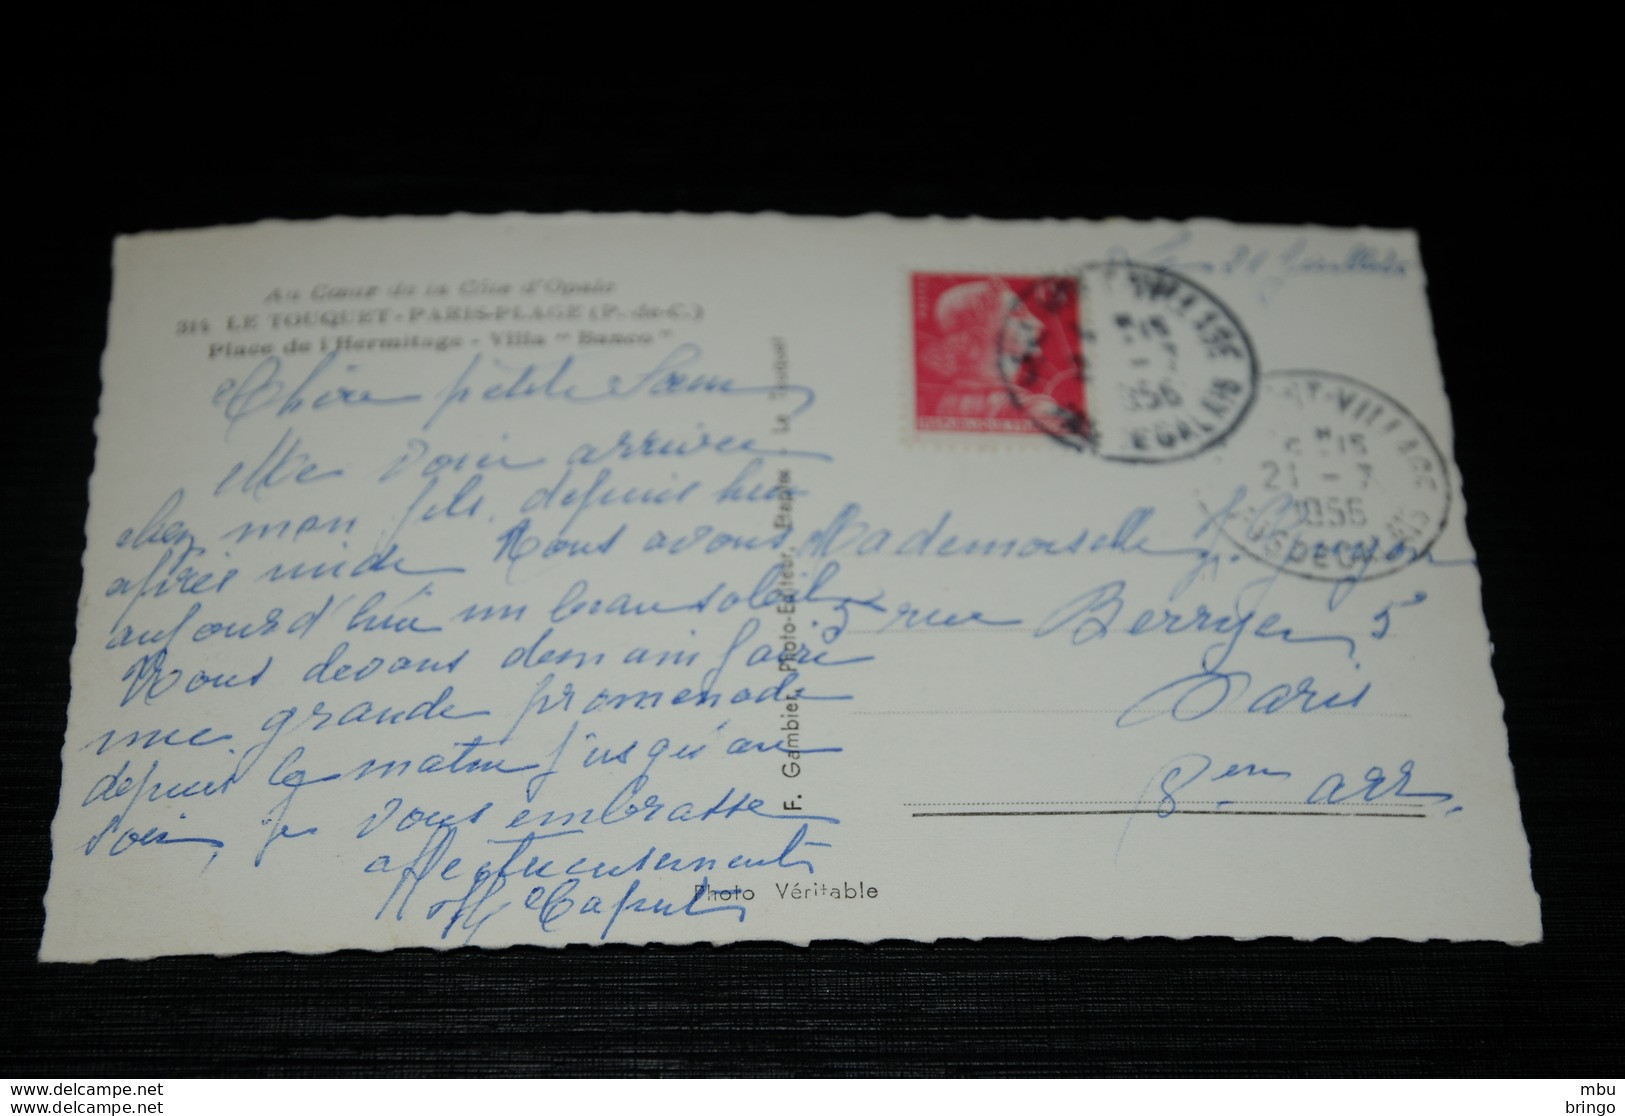 Au Cœur de la Côte d'Opale
314 LE TOUQUET-PARIS-PLAGE (P.-de-C.)
Place de l'Hermitage - Villa " Banco "
Le 21 Juillet
Chère petite Sœur
Me voici arrivée
chez mon fils, depuis hier
après midi. Nous avons
aujourd'hui un beau soleil
Nous devons demain faire
une grande promenade
depuis le matin jusqu'au
soir, je vous embrasse
affectueusement
Caput
F. Gambier, Photo-Editeur, Etaples Le Touquet
Photo Véritable
Mademoiselle
5 rue Berryer 5
Paris
8em arr.
21 - 7
1956
PAS DE CALAIS
mbu
bringo